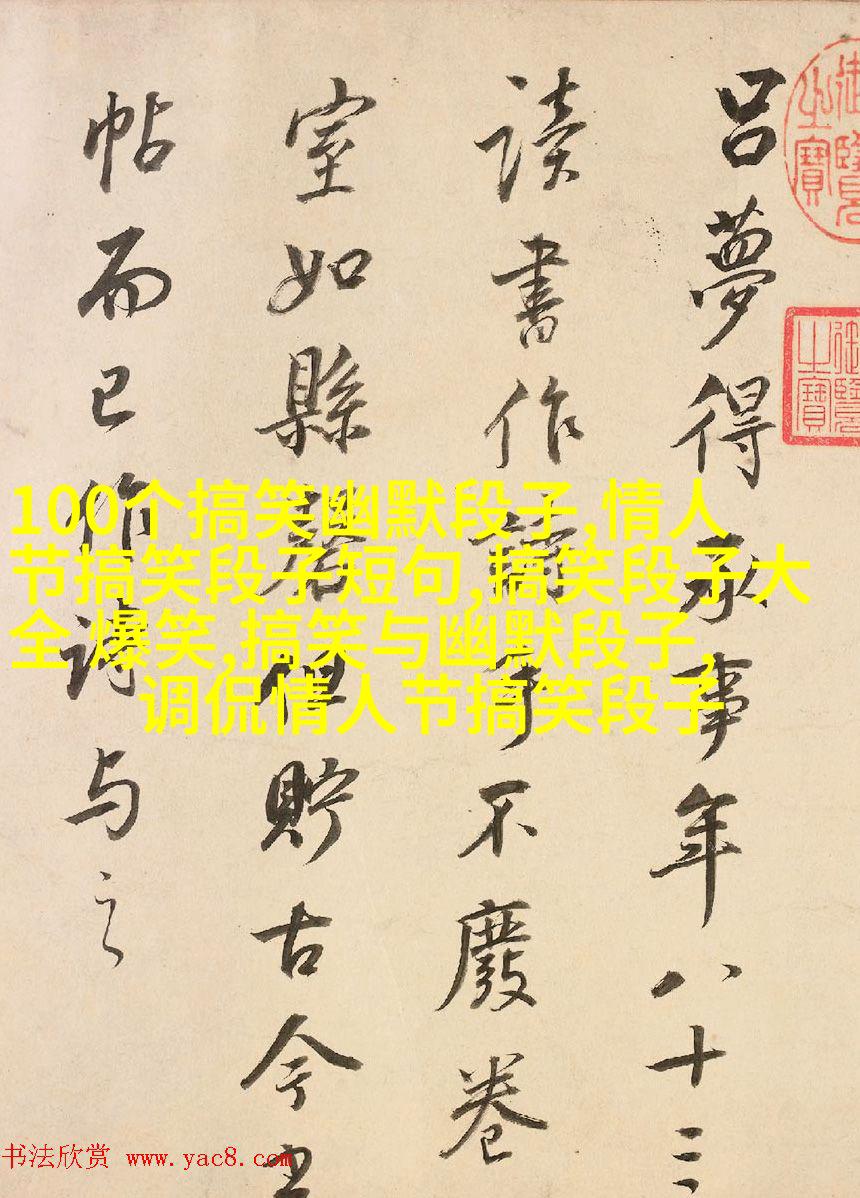 呂夢得承事年八十三
讀書作詩手不廢卷
室如縣但貯古今
帖而已作詩与之
御覽之寶
御覽之寶
100个搞笑幽默段子,情人
节搞笑段子短句,搞笑段子大
全 爆笑,搞笑与幽默段子,
调侃情人节搞笑段子
书法欣赏 www.yac8.com